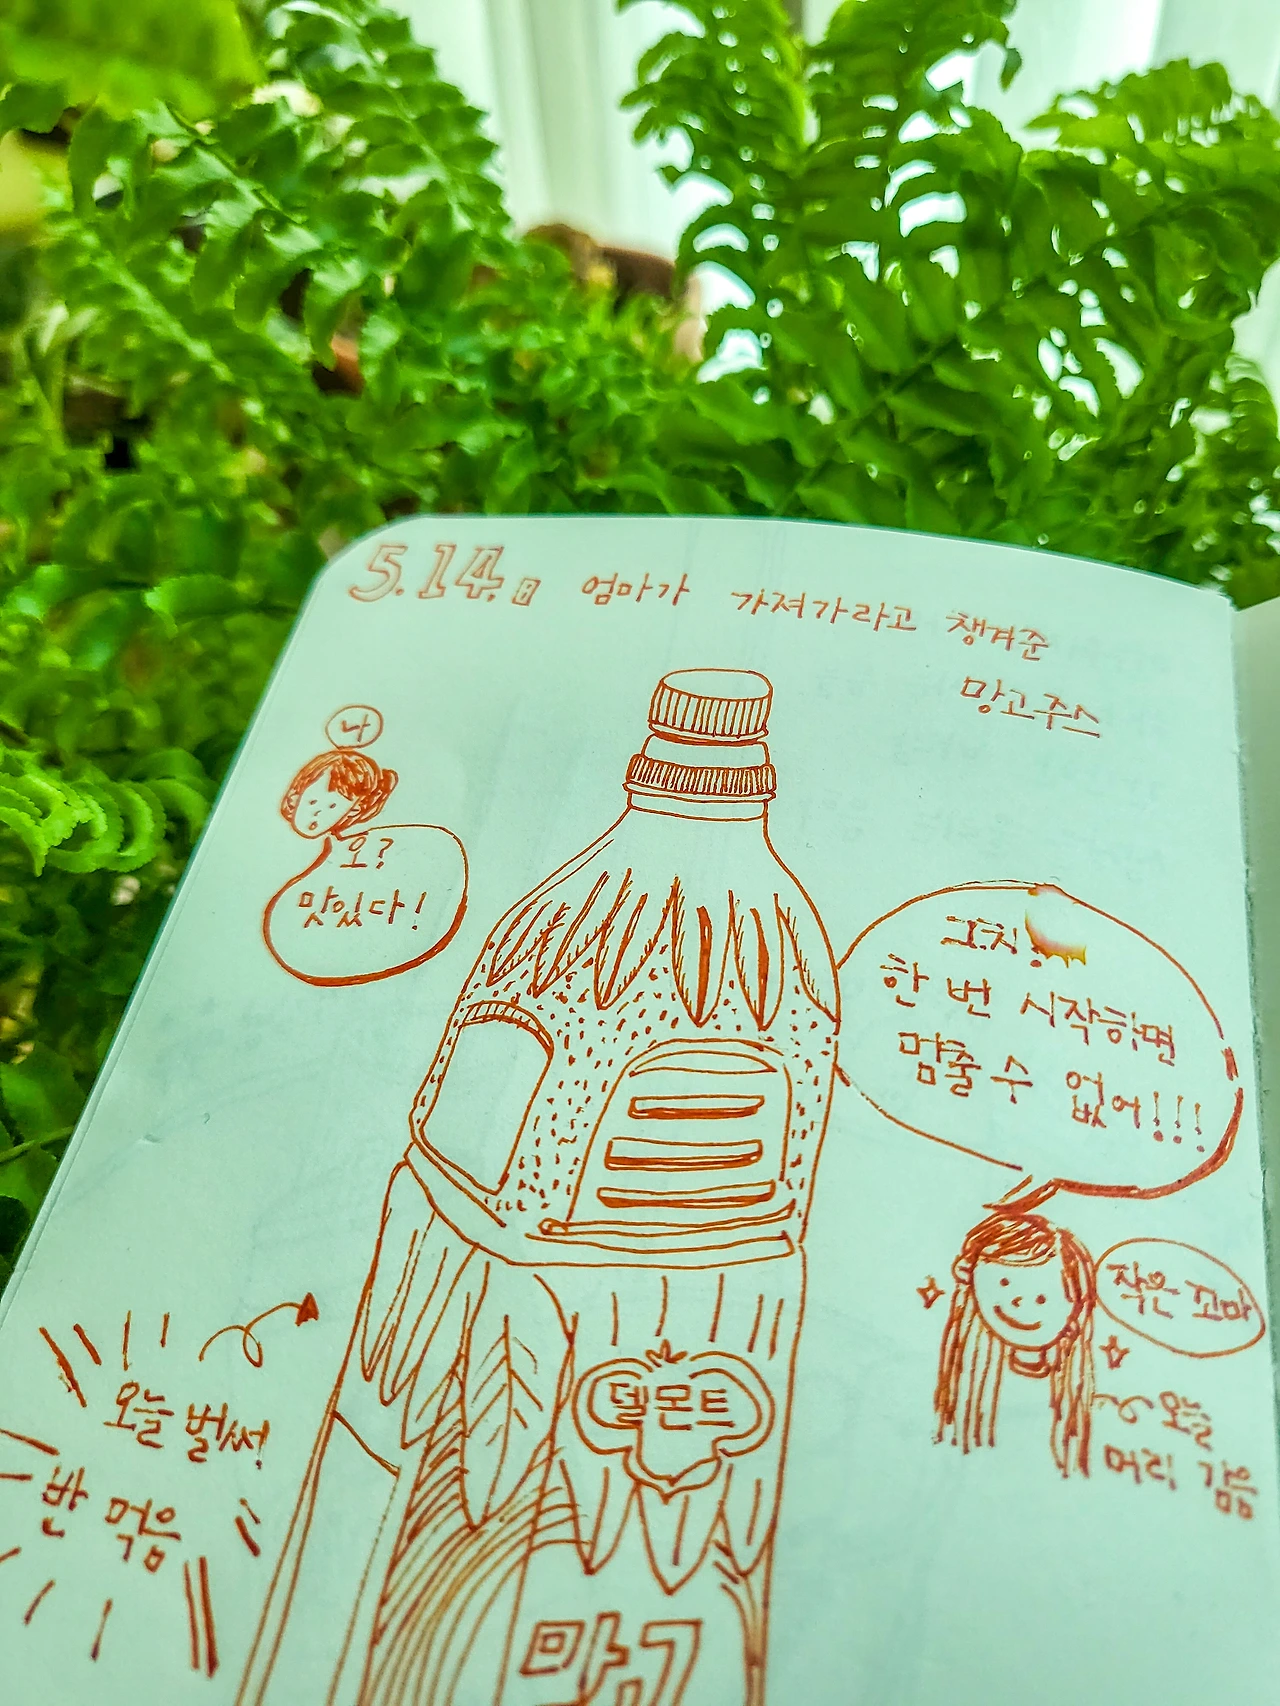 5.14.
엄마가 가져가라고 챙겨준
망고주스
나
오?
맛있다!
그치!
한 번 시작하면
멈출 수 없어!!!
작은 꼬마
오늘
머리 감음
오늘 벌써
반 먹음
델몬트
망고